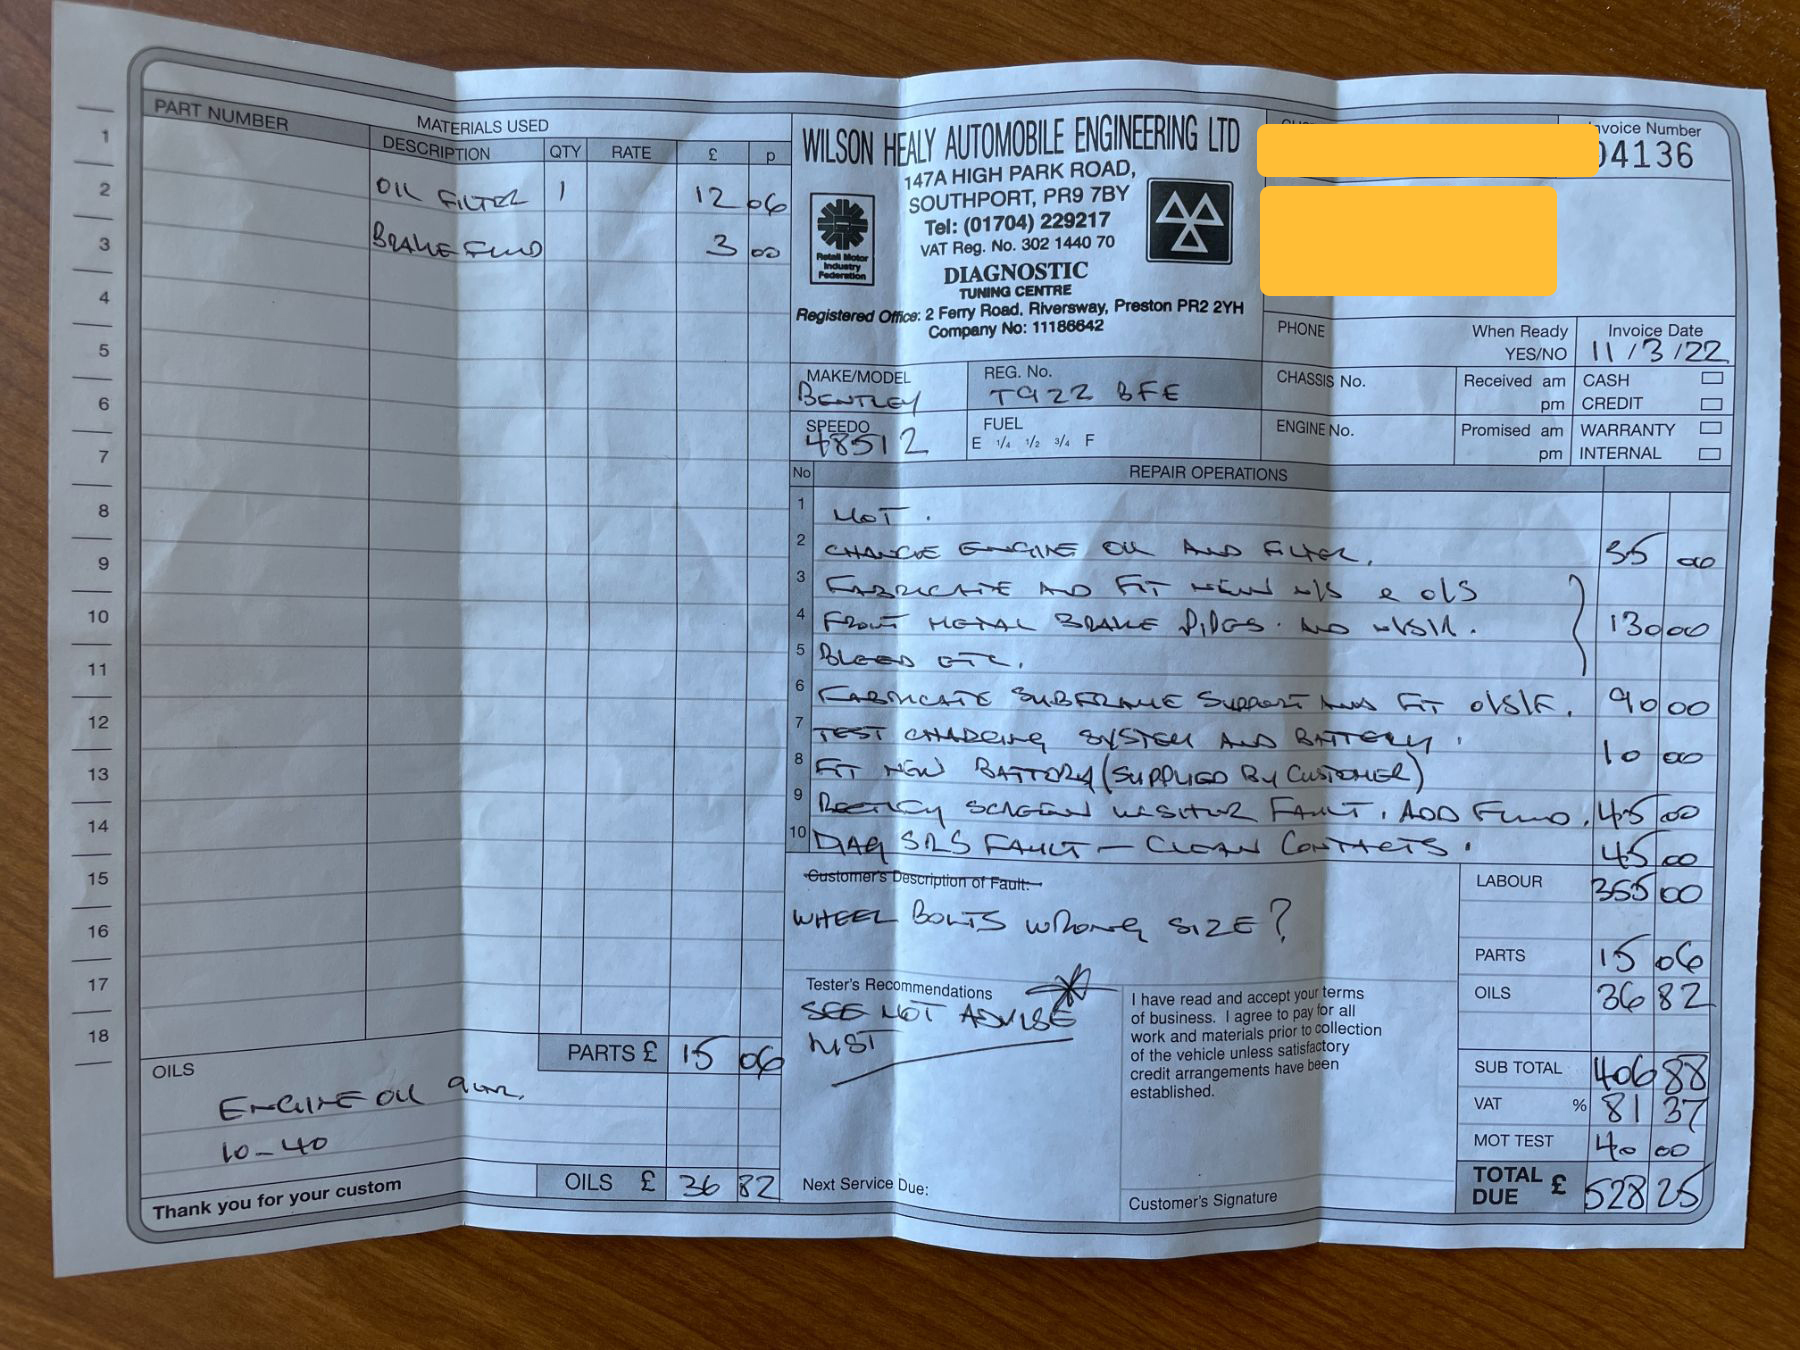 PART NUMBER
MATERIALS USED
DESCRIPTION QTY RATE £ p
1
2 OIL FILTER 1 12 06
3 BRAKE FLUID 3 00
4
5
6
7
8
9
10
11
12
13
14
15
16
17
18
PARTS £ 15 06
OILS
ENGINE OIL
10-40
OILS £ 36 82
Thank you for your custom
WILSON HEALY AUTOMOBILE ENGINEERING LTD
147A HIGH PARK ROAD,
SOUTHPORT, PR9 7BY
Tel: (01704) 229217
VAT Reg. No. 302 1440 70
Retail Motor
Industry
Federation
DIAGNOSTIC
TUNING CENTRE
Registered Office: 2 Ferry Road, Riversway, Preston PR2 2YH
Company No: 11186642
Invoice Number
04136
PHONE
When Ready
YES/NO
Invoice Date
11/3/22
MAKE/MODEL
BENTLEY
REG. No.
T922 BFE
CHASSIS No.
Received am
pm
CASH
CREDIT
SPEEDO
48512
FUEL
E 1/4 1/2 3/4 F
ENGINE No.
Promised am
pm
WARRANTY
INTERNAL
No REPAIR OPERATIONS
1 MOT.
2 CHANGE ENGINE OIL AND FILTER. 35 00
3 FABRICATE AND FIT NEW N/S & O/S
4 FRONT METAL BRAKE PIPES. AND N/S/R. 130 00
5 BLEED ETC.
6 FABRICATE SUBFRAME SUPPORT AND FIT O/S/F. 90 00
7 TEST CHARGING SYSTEM AND BATTERY. 10 00
8 FIT NEW BATTERY (SUPPLIED BY CUSTOMER)
9 RECTIFY SCREEN WASHER FAULT, ADD FLUID. 45 00
10 DIAG SRS FAULT - CLEAN CONTACTS. 45 00
Customer's Description of Fault:
WHEEL BOLTS WRONG SIZE?
LABOUR 355 00
PARTS 15 06
OILS 36 82
SUB TOTAL 406 88
VAT % 81 37
MOT TEST 40 00
TOTAL DUE £ 528 25
Tester's Recommendations
SEE MOT ADVISE
LIST
Next Service Due:
I have read and accept your terms
of business. I agree to pay for all
work and materials prior to collection
of the vehicle unless satisfactory
credit arrangements have been
established.
Customer's Signature